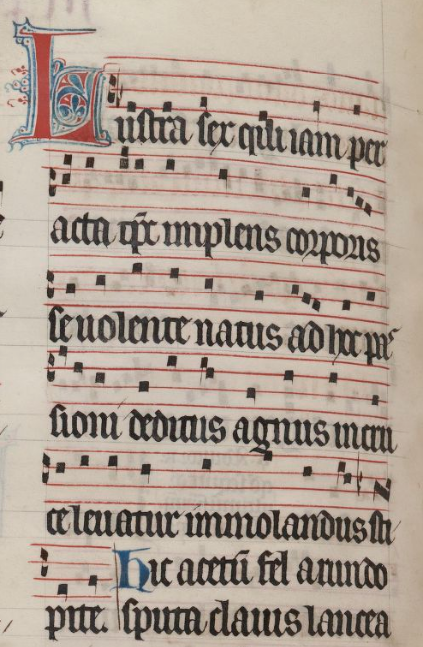 Lustra sex qui iam per
acta tp̄s implens corporis
se uolente natus ad hoc pas
sioni deditus agnus incru
ce leuatur immolandus sti
Hic acetū fel arundo
pite. sputa clauis lancea